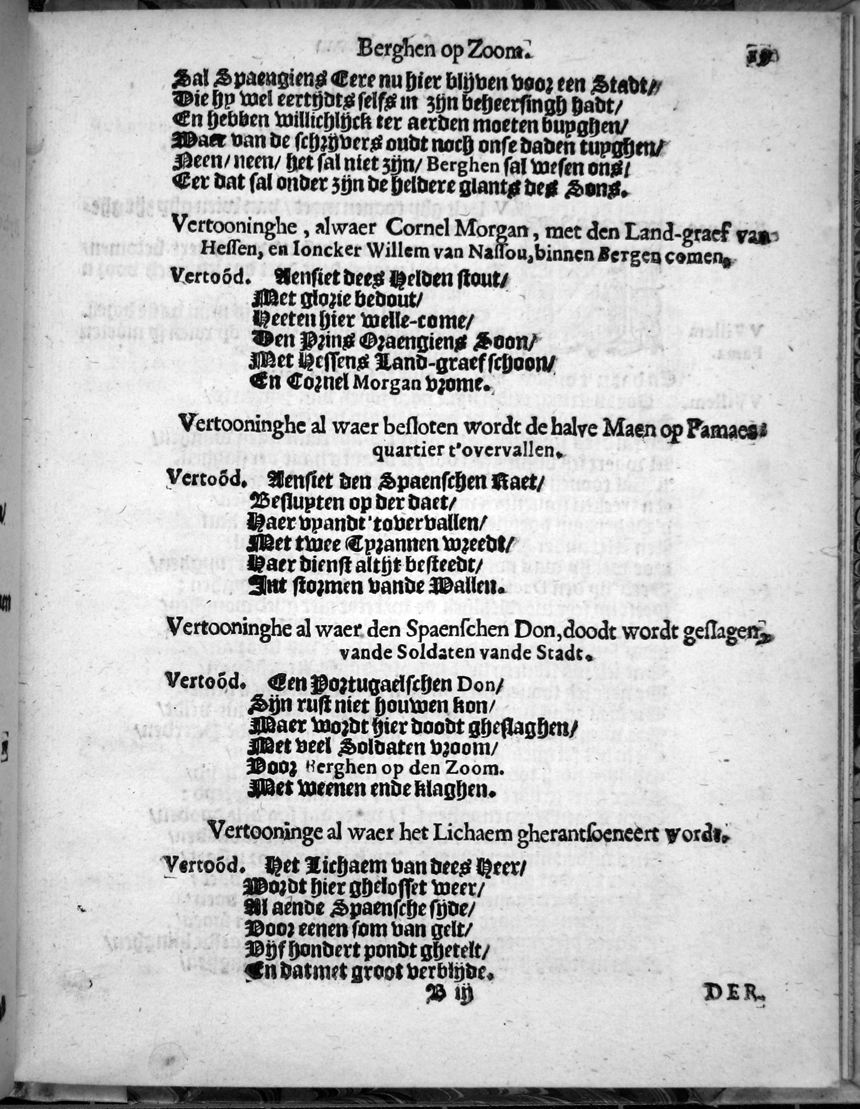 Berghen op Zoom.
19
Sal Spaengiens Eere nu hier blijven voor een Stadt/
Die hy wel eertijdts selfs in zijn beheersingh hadt/
En hebben willichlijck ter aerden moeten buyghen/
Waer van de schrijvers oudt noch onse daden tuyghen/
Neen/ neen/ het sal niet zijn/ Berghen sal wesen ons/
Eer dat sal onder zijn de heldere glants des Sons.
Vertooninghe, alwaer Cornel Morgan, met den Land-graef van
Hessen, en Ioncker Willem van Nassou, binnen Bergen comen.
Vertoõd. Aensiet dees Helden stout/
Met glorie bedout/
Heeten hier welle-come/
Den Prins Oraengiens Soon/
Met Hessens Land-graef schoon/
En Cornel Morgan vrome.
Vertooninghe al waer besloten wordt de halve Maen op Pamaes
quartier t'overvallen.
Vertoõd. Aensiet den Spaenschen Raet/
Besluyten op der daet/
Haer vyandt 'tovervallen/
Met twee Tyrannen wreedt/
Haer dienst altijt besteedt/
Int stormen vande Wallen.
Vertooninghe al waer den Spaenschen Don, doodt wordt geslagen,
vande Soldaten vande Stadt.
Vertoõd. Een Portugaelschen Don/
Sijn rust niet houwen kon/
Maer wordt hier doodt gheslaghen/
Met veel Soldaten vroom/
Voor Berghen op den Zoom.
Met weenen ende klaghen.
Vertooninge al waer het Lichaem gherantsoeneert wordt.
Vertoõd. Het Lichaem van dees Heer/
Wordt hier ghelosset weer/
Al aende Spaensche sijde/
Door eenen som van gelt/
Vijf hondert pondt ghetelt/
En dat met groot verblijde.
B iij
DER.